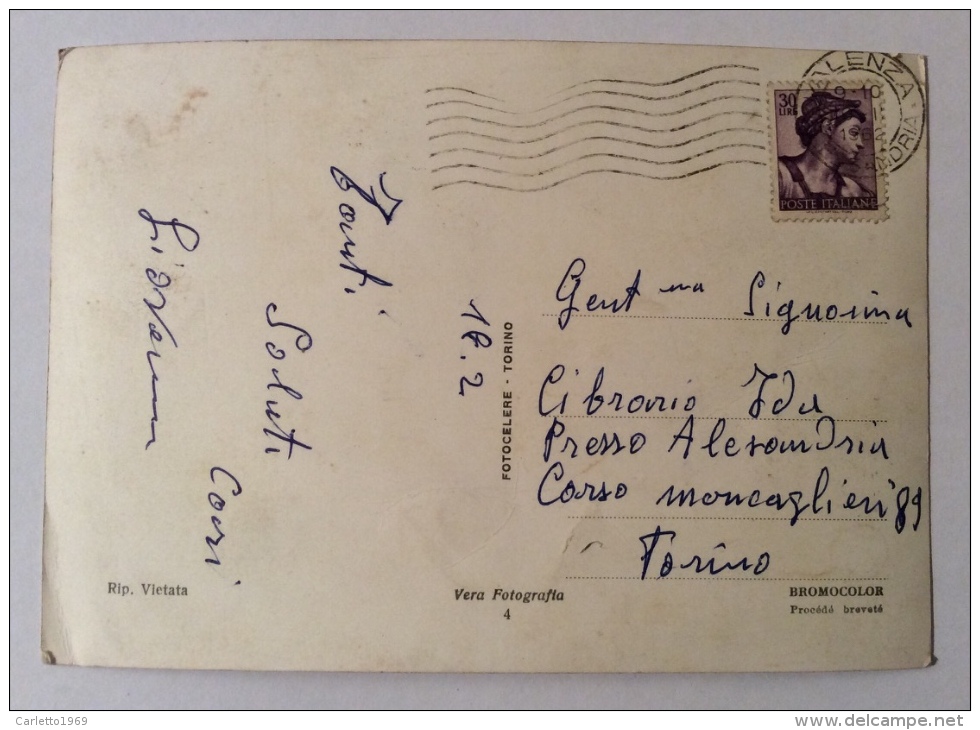 Tanti
Saluti
Cari
Giovanna
18.2
FOTOCELERE - TORINO
30
LIRE
POSTE ITALIANE
VALENZA
9-10
Gent ma Signorina
Cibrario Ida
Presso Alesandria
Corso moncaglieri 89
Torino
Rip. Vietata
Vera Fotografia
4
BROMOCOLOR
Procédé breveté
Carletto1969
www.delcampe.net